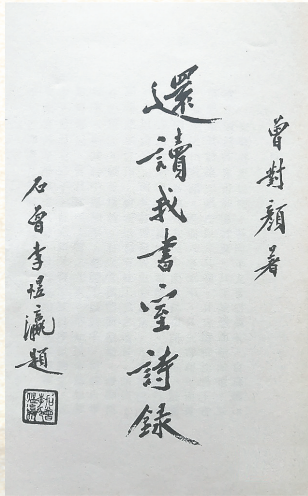 曾對顏著
還讀我書室詩錄
石曾李煜瀛題